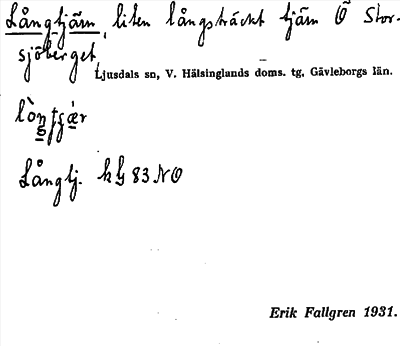 Långtjärn, liten långsträckt tjärn Ö Stor-
sjöberget,
Ljusdals sn, V. Hälsinglands doms. tg, Gävleborgs län.
Långtj. h bj 83 NO
Erik Fallgren 1931.